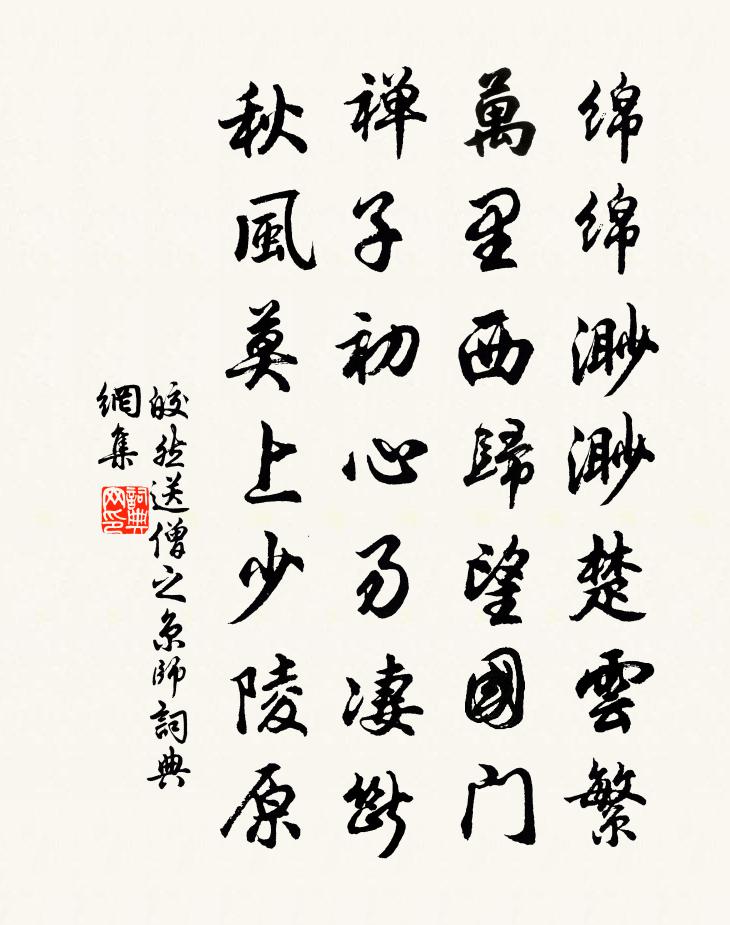 绵绵渺渺楚雲繁
萬里西歸望國门
禅子初心易凄斷
秋風莫上少陵原
皎然送僧之京師詞典
網集
詞典
网印